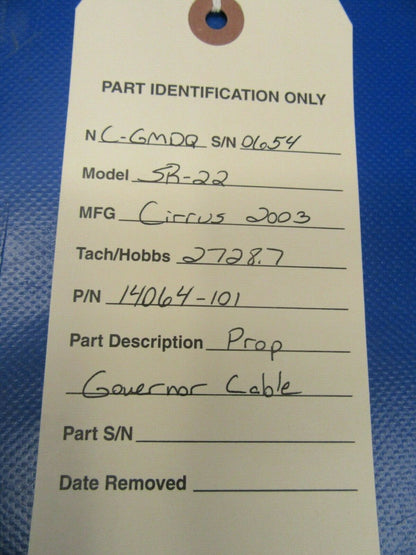 PART IDENTIFICATION ONLY
N C-GMDQ S/N 0654
Model SR-22
MFG Cirrus 2003
Tach/Hobbs 2728.7
P/N 14064-101
Part Description Prop
Governor Cable
Part S/N
Date Removed